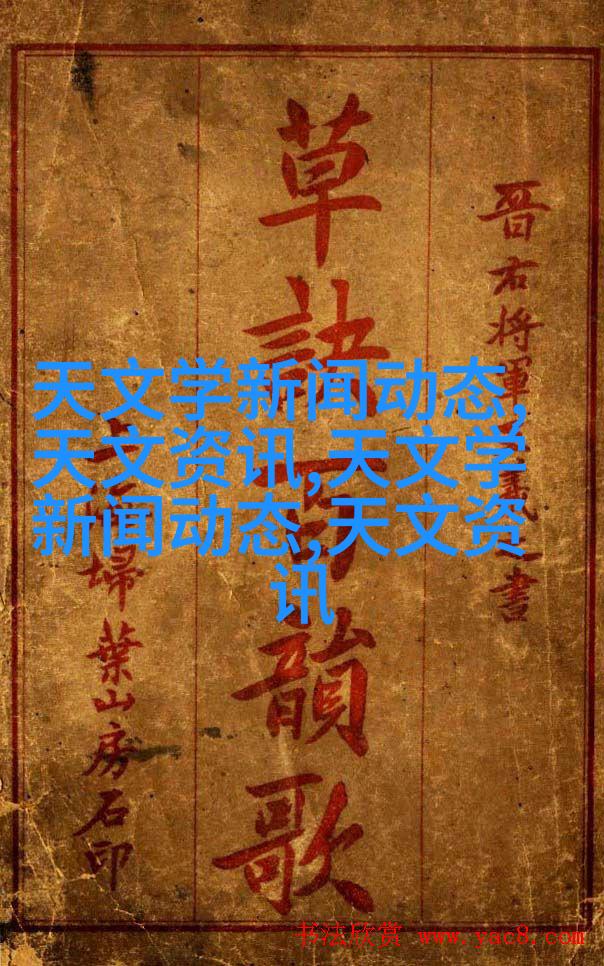 晋右将軍王羲之書
草訣百韻歌
上海掃葉山房石印
天文学新闻动态,
天文资讯,天文学
新闻动态,天文资
讯
书法欣赏 www.yac8.com